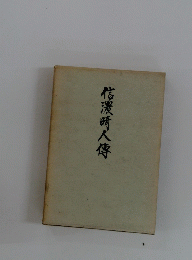 信濃畸人傳